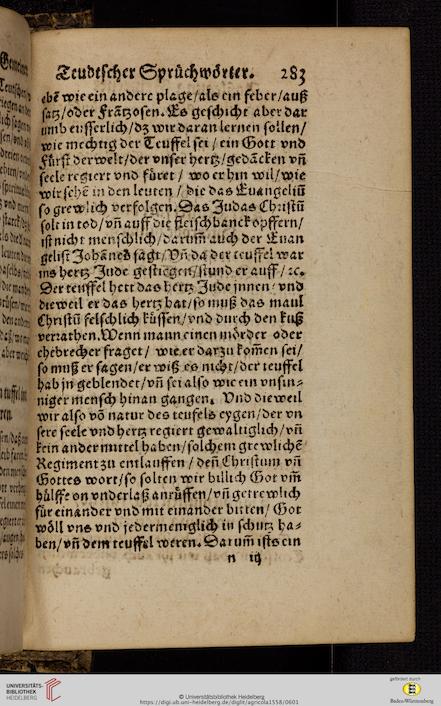 Teudtscher Sprüchwörter. 283
ebē wie ein andere plage/als ein feber/auß
satz/oder Frātzosen. Es geschicht aber dar
umb eusserlich/dz wir daran lernen sollen/
wie mechtig der Teuffel sei / ein Gott vnd
Fürst der welt/der vnser hertz/gedācken vñ
seele regiert vnd füret / wo er hin wil/wie
wir sehē in den leuten / die das Euangeliū
so grewlich verfolgen. Das Judas Christū
solt in tod/vñ auff die fleischbanck opffern/
ist nicht menschlich/darum̄ auch der Euan
gelist Johānes sagt/Vñ da der teuffel war
ins hertz Jude gestiegen/stund er auff /ꝛc.
Der teuffel hett das hertz Jude jnnen/vnd
dieweil er das hertz hat/so muß das maul
Christū felschlich küssen/vnd durch den kuß
verrathen. Wenn mann einen mörder oder
ehebrecher fraget / wie er darzu kom̄en sei/
so muß er sagen/er wiß es nicht/der teuffel
hab jn geblendet/vñ sei also wie ein vnsin-
niger mensch hinan gangen. Vnd dieweil
wir also vō natur des teufels eygen/der vn
sere seele vnd hertz regiert gewaltiglich/vñ
kein ander mittel haben/solchem grewlichē
Regiment zu entlauffen / deñ Christum vñ
Gottes wort/so solten wir billich Got vm̄
hülffe on vnderlaß anrüffen/vñ getrewlich
für einander vnd mit einander bitten/ Got
wöll vns vnd jedermeniglich in schutz ha-
ben/vñ dem teuffel weren. Darum̄ ists ein
n iij
UNIVERSITÄTS-
BIBLIOTHEK
HEIDELBERG
© Universitätsbibliothek Heidelberg
https://digi.ub.uni-heidelberg.de/diglit/agricola1558/0601
gefördert durch
Baden-Württemberg